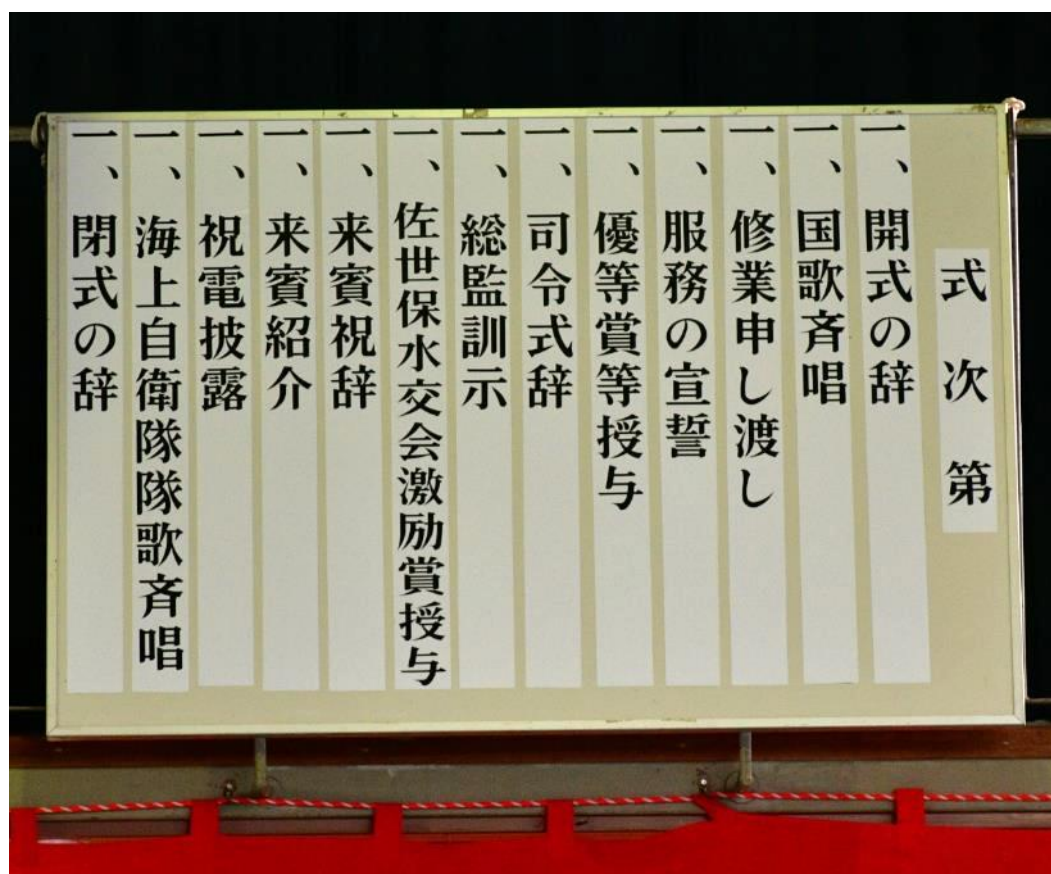 式次第
一、開式の辞
一、国歌斉唱
一、修業申し渡し
一、服務の宣誓
一、優等賞等授与
一、司令式辞
一、総監訓示
一、佐世保水交会激励賞授与
一、来賓祝辞
一、来賓紹介
一、祝電披露
一、海上自衛隊隊歌斉唱
一、閉式の辞